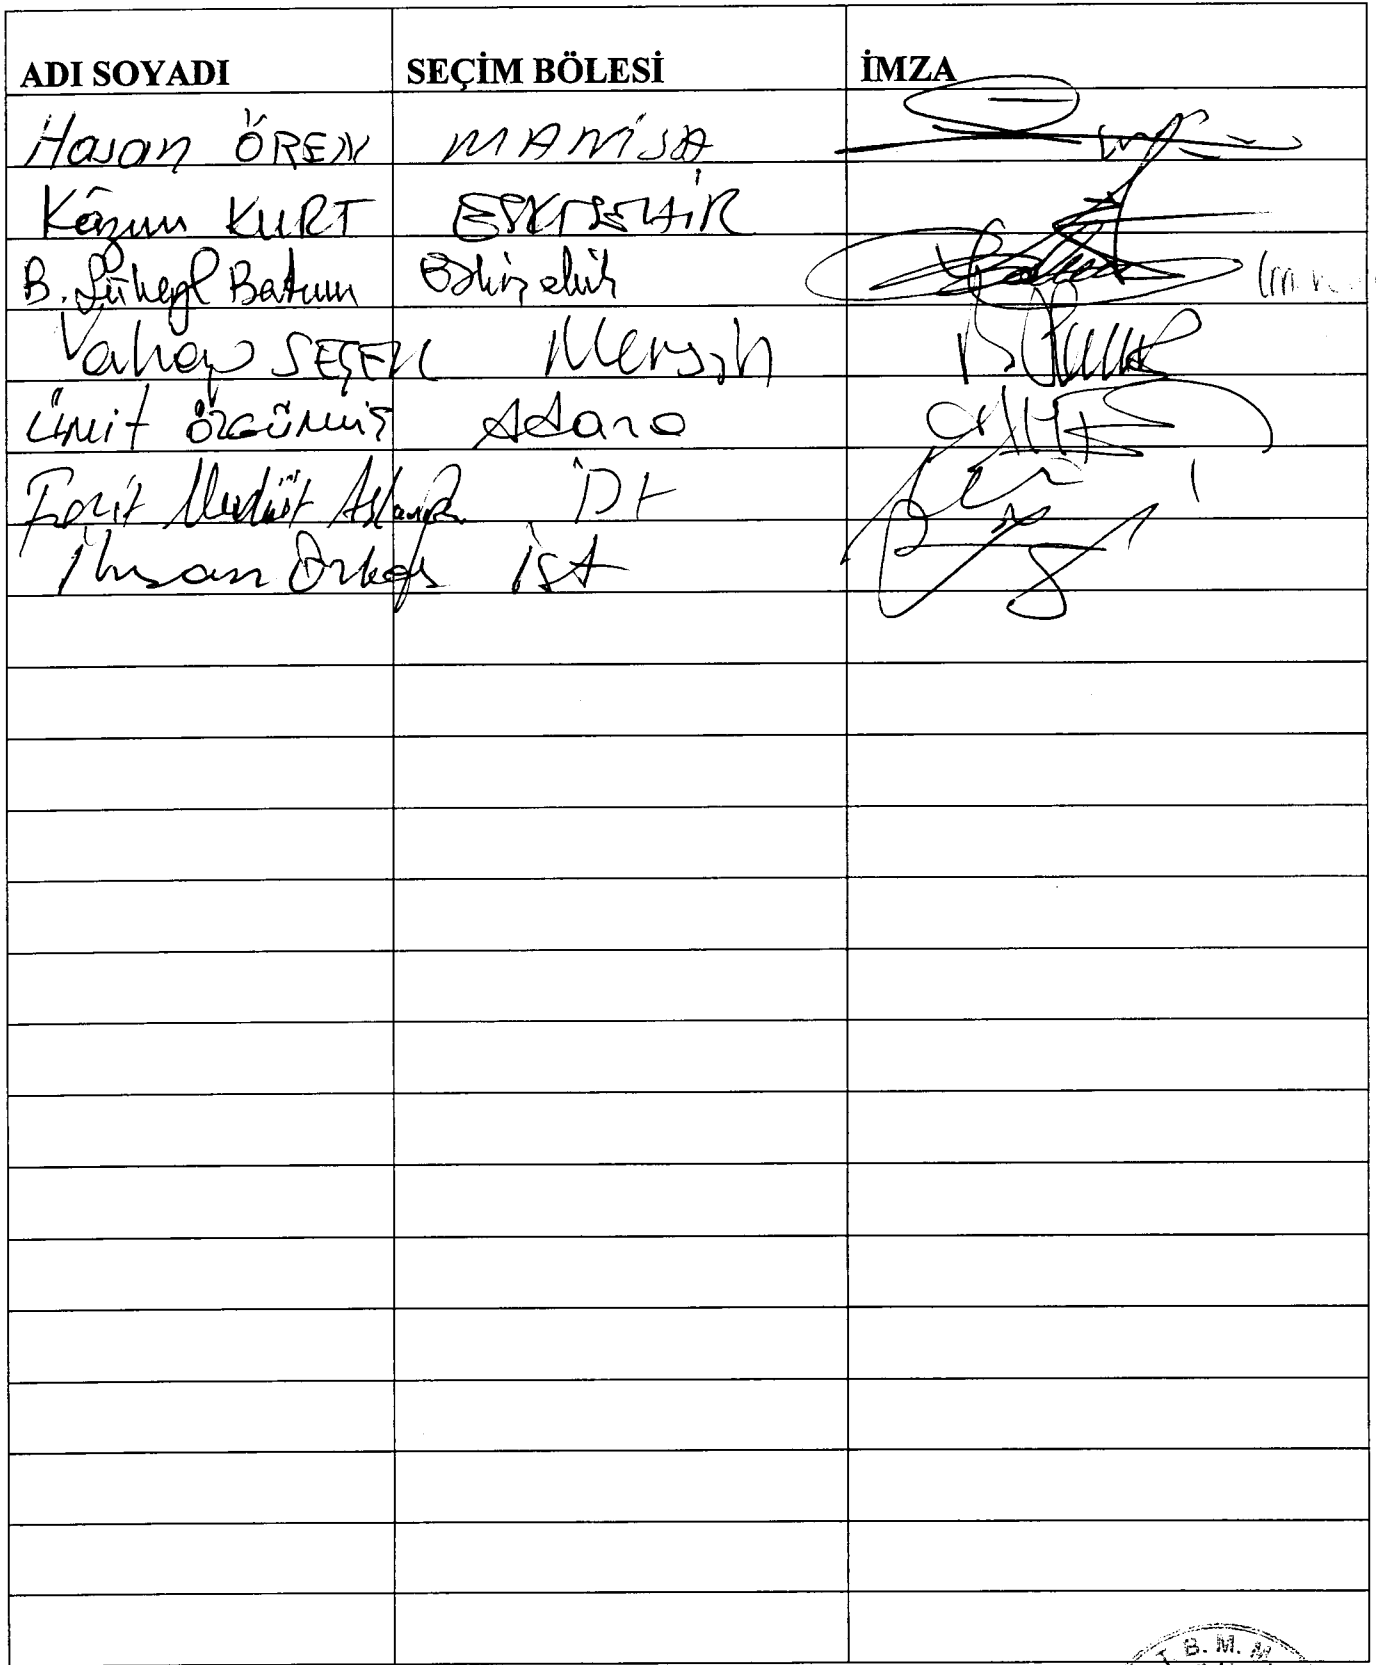 ADI SOYADI SEÇİM BÖLESİ İMZA
Hasan ÖREN MANİSA
Kâzım KURT ESKİŞEHİR
B. Süheyl Batum Eskişehir
Vahap SEÇER Mersin
Ümit ÖZGÜMÜŞ Adana
Ferit Mevlüt Aslanoğlu İst
İhsan Özkes İst
T.B.M.M.